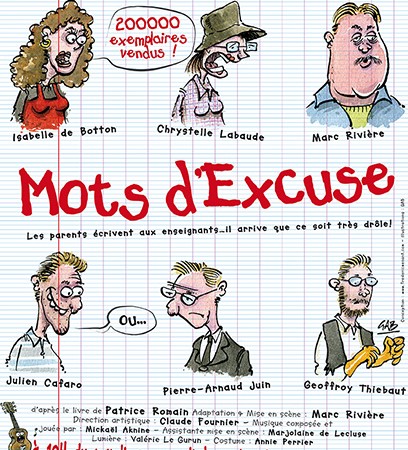 200000
exemplaires
vendus !
Isabelle de Botton
Chrystelle Labaude
Marc Rivière
Mots d'Excuse
Les parents écrivent aux enseignants...il arrive que ce soit très drôle!
OU...
GAB
Julien Cafaro
Pierre-Arnaud Juin
Geoffroy Thiebaut
d'après le livre de Patrice Romain Adaptation & Mise en scène : Marc Rivière
Direction artistique : Claude Fournier - Musique composée et
jouée par : Mickaël Aknine - Assistante mise en scène : Marjolaine de Lecluse
Lumière : Valérie Le Gurun - Costume : Annie Perrier